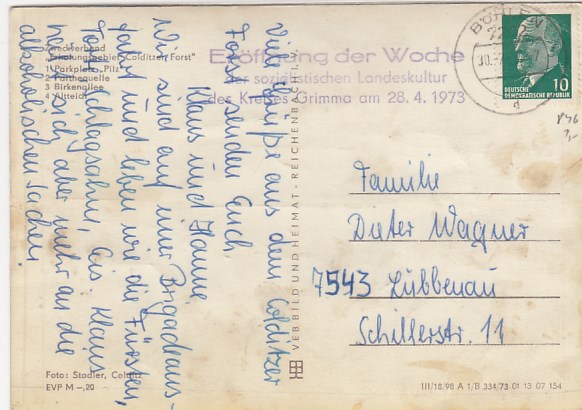 Zweckverband
"Erholungsgebiet Colditzer Forst"
1 Parkplatz "Pilz"
2 Parthequelle
3 Birkenallee
4 Altteich
Eröffnung der Woche
der sozialistischen Landeskultur
des Kreises Grimma am 28. 4. 1973
BÖHLEN
10
DEUTSCHE
DEMOKRATISCHE REPUBLIK
Viele Grüße aus dem Colditzer
Forst senden Euch
Klaus und Hanne
Wir sind auf einer Brigadeaus-
fahrt und leben wie die Fürsten,
Torte, Schlagsahn, Eis. Klaus
hält sich aber mehr an die
alkoholischen Sachen.
VEB BILD UND HEIMAT · REICHENBACH I. V.
Familie
Dieter Wagner
7543 Lübbenau
Schillerstr. 11
Foto: Stadler, Colditz
EVP M –,20
III/18/98 A 1/B 334/73 01 13 07 154